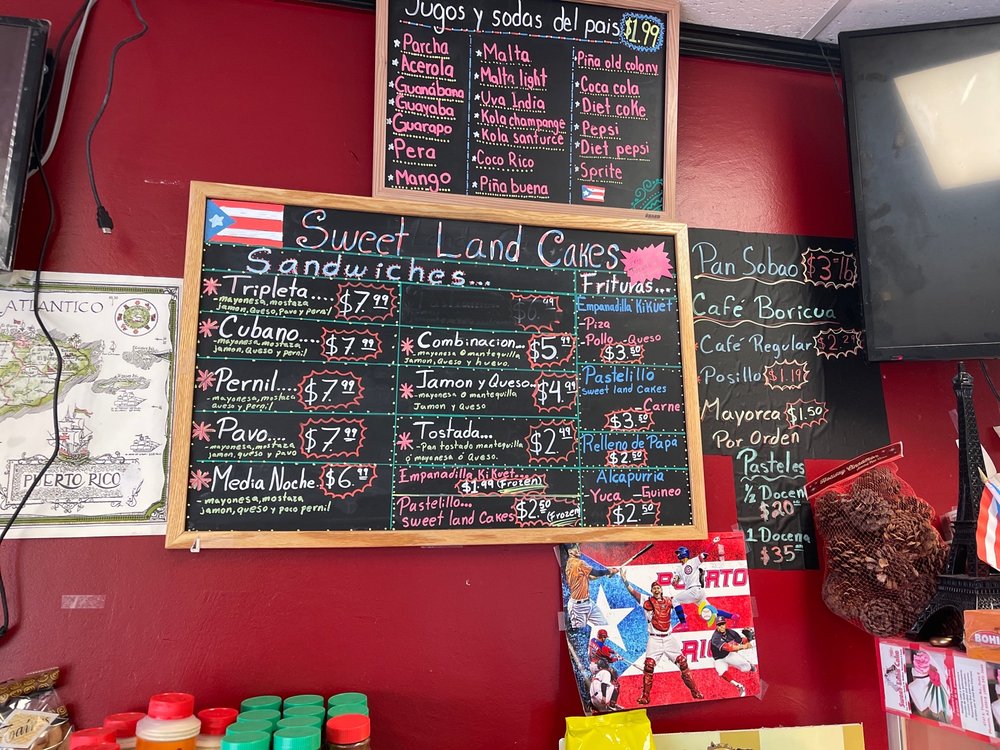 Jugos y sodas del pais $1.99
Parcha
Acerola
Guanábana
Guayaba
Guarapo
Pera
Mango
Malta
Malta light
Uva India
Kola champange
Kola santurce
Coco Rico
Piña buena
Piña old colony
Coca cola
Diet coke
Pepsi
Diet pepsi
Sprite
Sweet Land Cakes
Sandwiches...
Tripleta.... $7.99
-mayonesa, mostaza
jamon, Queso, Pavo y pernil
Cubano... $7.99
-mayonesa, mostaza
jamon, Queso y pernil
Pernil.... $7.99
-mayonesa, mostaza
queso y pernil
Pavo... $7.99
-mayonesa, mostaza
queso y pavo
Media Noche. $6.99
mayonesa, mostaza
jamon, queso y poco pernil
Combinacion... $5.99
-mayonesa o mantequilla
Jamon, Queso y huevo.
Jamon y Queso... $4.99
-mayonesa o mantequilla
Jamon y Queso
Tostada... $2.99
-Pan tostado mantequilla
ó mayonesa ó Queso
Empanadilla KiKuet...
$1.99 (Frozen)
Pastelillo...
Sweet land Cakes $2.50 (Frozen)
Frituras...
Empanadilla KiKuet
-Piza
-Pollo -Queso
$3.50
Pastelillo
Sweet land Cakes
-Carne
$3.50
Relleno de Papa
$2.50
Alcapurria
Yuca - Guineo
$2.50
Pan Sobao $3.-lb
Café Boricua
Café Regular $2.29
Posillo $1.19
Mayorca $1.50
Por Orden
Pasteles
½ Docena
$20
1 Docena
$35
ATLANTICO
PUERTO RICO
PUERTO
RICO
BOHI